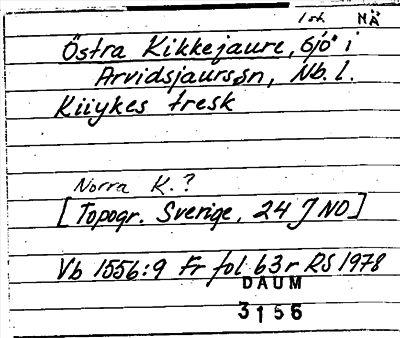 1 st. NÄ
Östra Kikkejaure, sjö i
Arvidsjaurs sn, Nb. l.
Kiiykes tresk
Norra K.?
[Topogr. Sverige, 24 J NO]
Vb 1556:9 Fr fol 63r RS 1978
DAUM
3156